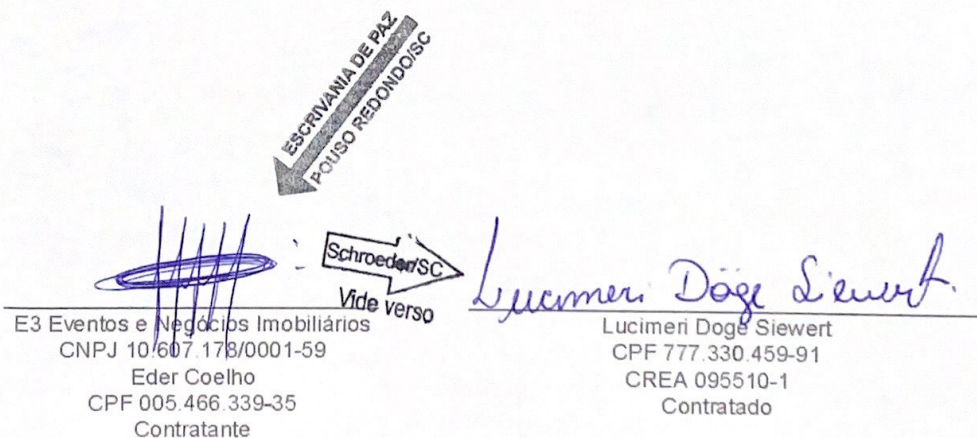 ESCRIVANIA DE PAZ
POUSO REDONDO/SC
Schroeder/SC
Vide verso
Lucimeri Döge Siewert.
E3 Eventos e Negócios Imobiliários
CNPJ 10.607.178/0001-59
Eder Coelho
CPF 005.466.339-35
Contratante
Lucimeri Doge Siewert
CPF 777.330.459-91
CREA 095510-1
Contratado